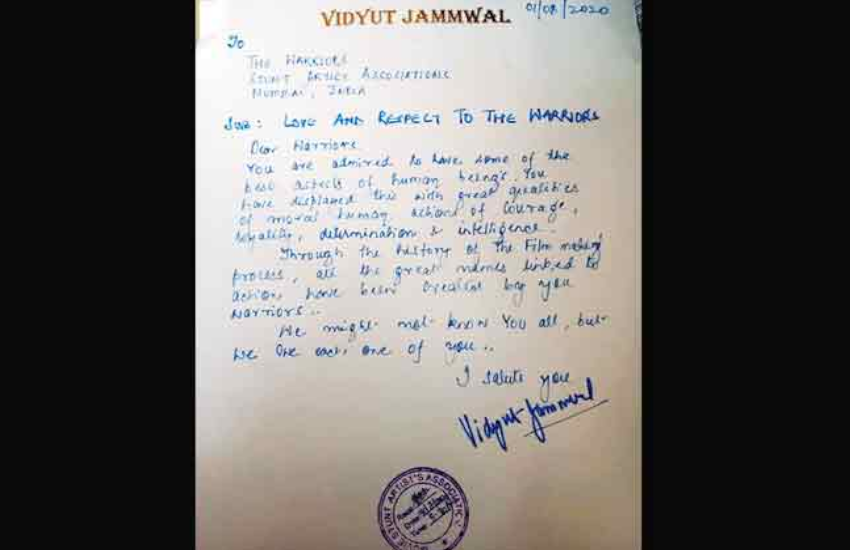 VIDYUT JAMMWAL
01/08/2020
To
THE WARRIORS
STUNT ARTIST ASSOCIATIONS
MUMBAI, INDIA
SUB: LOVE AND RESPECT TO THE WARRIORS
Dear Warriors
You are admired to have some of the
best aspects of human being's. You
have displayed this with great qualities
of moral human actions of courage,
loyality, determination & intelligence.
Through the history of the Film making
process, all the great names linked to
action, have been created by you
warriors..
We might not know You all, but
we owe each one of you..
I salute you
Vidyut Jammwal
STUNT ARTIST'S ASSOCIATION